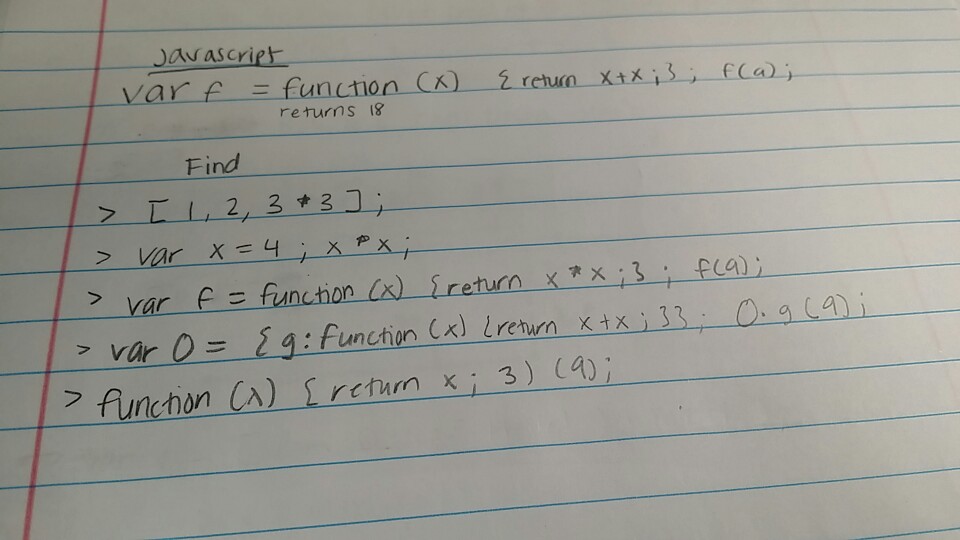 javascript
var f = function (x) { return x+x ; } ; f(9) ;
returns 18
Find
> [ 1, 2, 3 * 3 ] ;
> var x = 4 ; x * x ;
> var f = function (x) { return x * x ; } ; f(9) ;
> var O = { g : function (x) { return x+x ; } } ; O.g (9) ;
> function (x) { return x ; } ) (9) ;